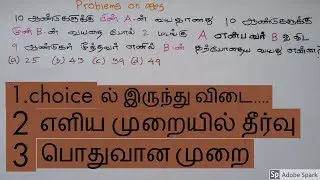 Problems on ages
10 ஆண்டுகளுக்கு பின் A-ன் வயதானது 10 ஆண்டுகளுக்கு
முன் B-ன் வயதை போல் 2 மடங்கு A என்பவர் B ஐ விட
9 ஆண்டுகள் மூத்தவர் எனில் B-ன் தற்போதைய வயது என்ன?
(a) 25 (b) 43 (c) 39 (d) 49
1.choice ல் இருந்து விடை....
2 எளிய முறையில் தீர்வு
3 பொதுவான முறை
Sp Adobe Spark